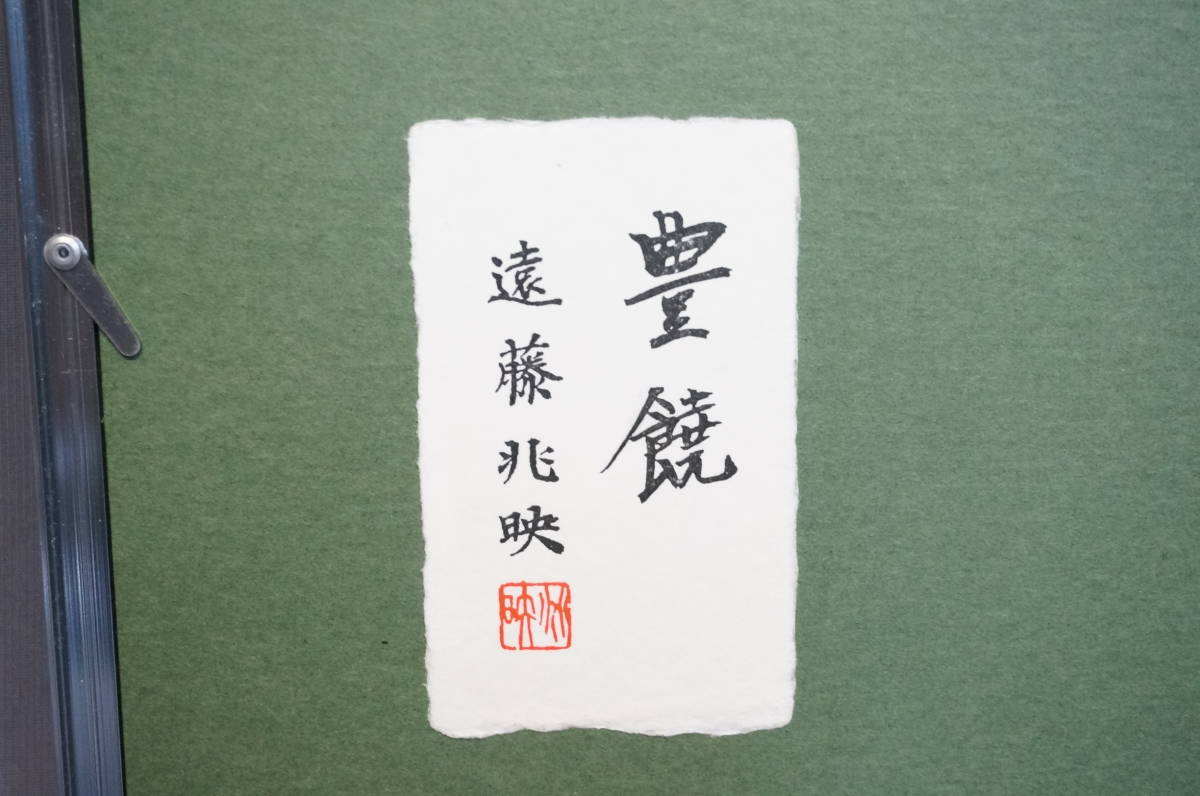 豊饒
遠藤兆映
兆映